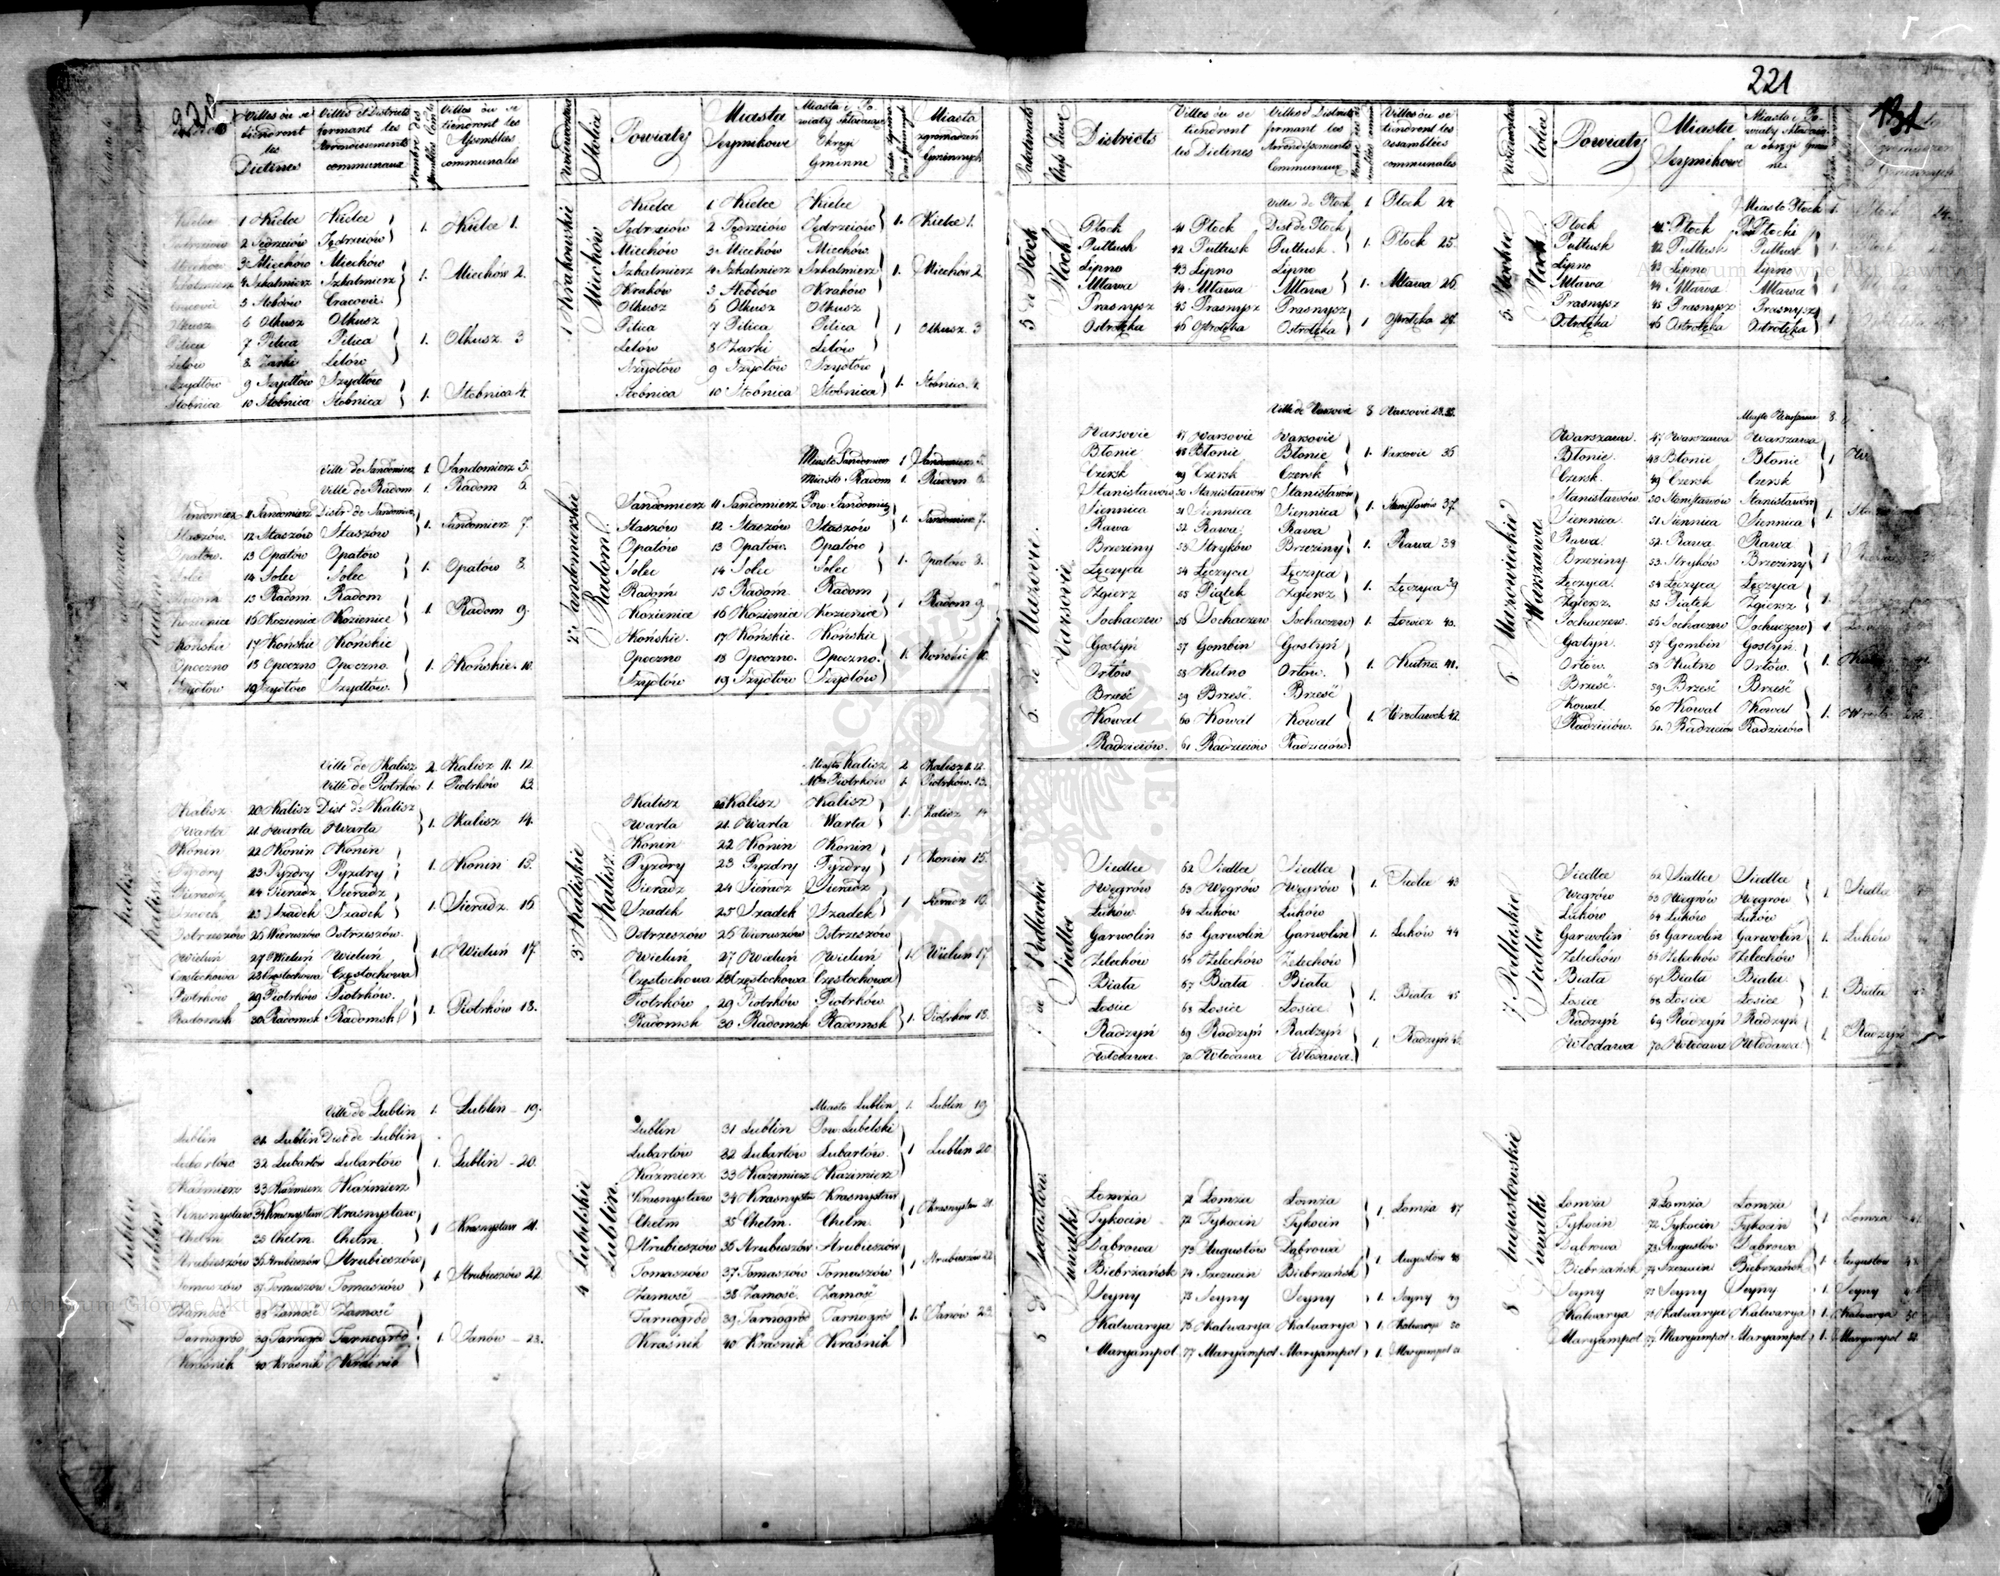 220
Villes où se tiendront les Diétines
Villes et Districts formant les Arrondissements communaux
Villes où se tiendront les Assemblées communales
1 Kielce Kielce 1. Kielce 1.
2 Jędrzeiów Jędrzeiów
3 Miechów Miechów
4 Szkalmierz Szkalmierz 1. Miechów 2.
Cracovie
6 Olkusz Olkusz
7 Pilica Pilica 1. Olkusz 3
8 Żarki Lelów
Szydłów 9 Szydłów Szydłów
Stobnica 10 Stobnica Stobnica 1. Stobnica 4.
Ville de Sandomierz 1. Sandomierz 5.
Ville de Radom 1. Radom 6.
Sandomierz 11 Sandomierz Distr. de Sandomierz
Staszów 12 Staszów Staszów 1. Sandomierz 7.
Opatów 13 Opatów Opatów
Solec 14 Solec Solec 1. Opatów 8.
Radom 15 Radom Radom
Kozienice 16 Kozienice Kozienice 1. Radom 9.
Końskie 17 Końskie Końskie
Opoczno 18 Opoczno Opoczno 1. Końskie 10.
Szydłów 19 Szydłów Szydłów.
Ville de Kalisz 2. Kalisz 11. 12
Ville de Piotrków 1. Piotrków 13.
Kalisz 20 Kalisz Dist. de Kalisz
Warta 21 Warta Warta 1. Kalisz 14.
Konin 22 Konin Konin
Pyzdry 23 Pyzdry Pyzdry 1. Konin 15.
Sieradz 24 Sieradz Sieradz
Szadek 25 Szadek Szadek 1. Sieradz 16
Ostrzeszów 26 Wieruszów Ostrzeszów.
Wieluń 27 Wieluń Wieluń 1. Wieluń 17.
Częstochowa 28 Częstochowa Częstochowa
Piotrków 29 Piotrków Piotrków.
Radomsk 30 Radomsk Radomsk 1. Piotrków 18.
Ville de Lublin 1. Lublin 19.
Lublin 31 Lublin Dist de Lublin
Lubartów 32 Lubartów Lubartów 1. Lublin 20.
Kaźmierz 33 Kaźmierz Kaźmierz
Krasnystaw 34 Krasnystaw Krasnystaw
Chełm 35 Chełm. Chełm. 1 Krasnystaw 21.
Hrubieszów 36 Hrubieszów Hrubieszów
Tomaszów 37 Tomaszów Tomaszów 1. Hrubieszów 22.
Zamość 38 Zamość Zamość
Tarnogród 39 Tarnogród Tarnogród 1. Janów 23.
Kraśnik 40 Kraśnik Kraśnik
Stolica
Powiaty
Miasta Seymikowe
Okręgi Gminne
Miasta zgromadzeń Gminnych
1 Krakowskie
Miechów
Kielce 1 Kielce Kielce
Jędrzeiów 2 Jędrzeiów Jędrzeiów 1. Kielce 1.
Miechów 3 Miechów Miechów
Szkalmierz 4 Szkalmierz Szkalmierz 1. Miechów 2
Kraków 5 Kraków
Olkusz 6 Olkusz Olkusz
Pilica 7 Pilica Pilica 1 Olkusz 3
Lelów 8 Żarki Lelów
Szydłów 9 Szydłów Szydłów
Stobnica 10 Stobnica Stobnica 1. Stobnica 4.
2. Sandomierskie
Radom.
Miasto Sandomierz 1 Sandomierz 5.
Miasto Radom 1. Radom 6.
Sandomierz 11 Sandomierz Pow. Sandomierz
Staszów 12 Staszów Staszów 1. Sandomierz 7.
Opatów 13 Opatów. Opatów
Solec 14 Solec Solec 1. Opatów 8.
Radom 15 Radom Radom
Kozienice 16 Kozienice Kozienice 1 Radom 9.
Końskie. 17 Końskie. Końskie
Opoczno 18 Opoczno. Opoczno. 1. Końskie 10.
Szydłów 19 Szydłów Szydłów
3. Kaliskie
Kalisz.
Miasto Kalisz 2 Kalisz 11. 12.
Piotrków 1. Piotrków. 13.
Kalisz 20 Kalisz Kalisz
Warta 21. Warta Warta 1. Kalisz 14
Konin 22 Konin Konin
Pyzdry 23 Pyzdry Pyzdry 1 Konin 15.
Sieradz 24 Sieradz Sieradz
Szadek 25 Szadek Szadek 1 Sieradz 16.
Ostrzeszów 26 Wieruszów Ostrzeszów
Wieluń 27 Wieluń Wieluń 1. Wieluń 17.
Częstochowa 28 Częstochowa Częstochowa
Piotrków 29 Piotrków Piotrków
Radomsk 30 Radomsk Radomsk 1. Piotrków 18.
4 Lubelskie
Lublin.
Miasto Lublin 1. Lublin 19
Lublin 31 Lublin Pow. Lubelski
Lubartów 32 Lubartów Lubartów. 1 Lublin 20.
Kaźmierz 33 Kaźmierz Kaźmierz
Krasnystaw 34 Krasnystaw Krasnystaw
Chełm 35 Chełm. Chełm 1 Krasnystaw 21.
Hrubieszów 36 Hrubieszów Hrubieszów
Tomaszów 37 Tomaszów Tomaszów 1. Hrubieszów 22.
Zamość 38. Zamość. Zamość
Tarnogród 39 Tarnogród Tarnogród 1. Janów 23.
Kraśnik 40 Kraśnik Kraśnik
221
Palatinats
Districts
Villes où se tiendront les Diétines
Villes et Districts formant les Arrondissements Communaux
Villes où se tiendront les assemblées communales
5 de Płock
Płock
Ville de Płock 1 Płock 24.
Płock 41 Płock Dist de Płock
Pułtusk 42 Pułtusk Pułtusk 1. Płock 25.
Lipno 43 Lipno Lipno
Mława 44 Mława Mława 1. Mława 26.
Prasnysz 45 Prasnysz Prasnysz
Ostrołęka 46 Ostrołęka Ostrołęka 1 Ostrołęka
6. de Mazovie
Varsovie
Ville de Varsovie 8 Varsovie
Varsovie 47 Varsovie Varsovie
Błonie 48 Błonie Błonie 1. Varsovie 36
Czersk 49 Czersk Czersk
Stanisławów 50 Stanisławów Stanisławów
Siennica 51 Siennica Siennica 1. Stanisławów 37.
Rawa 52. Rawa Rawa
Brzeziny 53 Stryków Brzeziny 1. Rawa 38
Łęczyca 54 Łęczyca Łęczyca
Zgierz 55 Piątek Zgierz 1. Łęczyca 39
Sochaczew 56 Sochaczew Sochaczew 1. Łowicz 40.
Gostyń 57 Gombin Gostyń
Orłów 58 Kutno Orłów. 1. Kutno 41.
Brześć 59 Brześć Brześć
Kowal 60 Kowal Kowal 1. Wrocławek 42.
Radzieiów. 61 Radzieiów Radzieiów
7. de Podlachie
Siedlce
Siedlce 62 Siedlce Siedlce
Węgrów 63 Węgrów Węgrów 1. Siedlce 43
Łuków. 64 Łuków Łuków
Garwolin 65 Garwolin Garwolin 1. Łuków 44
Żelechów 66 Żelechów Żelechów
Biała 67 Biała Biała
Łosice 68 Łosice Łosice 1. Biała 45
Radzyń 69 Radzyń Radzyń
Włodawa 70. Włodawa Włodawa 1. Radzyń 46.
8 d'Augustów
Suwałki
Łomża 71 Łomża Łomża
Tykocin 72 Tykocin Tykocin 1. Łomża 47
Dąbrowa 73 Augustów Dąbrowa
Biebrzańsk 74 Szczucin Biebrzańsk 1 Augustów 48
Seyny 75 Seyny Seyny 1. Seyny 49
Kalwarya 76 Kalwarya Kalwarya 1. Kalwarya 50
Maryampol 77 Maryampol Maryampol 1. Maryampol 51
131
Województwa
Stolice
Powiaty
Miasta Seymikowe
5. Płockie
Płock
Miasto Płock 1. Płock 24.
Płock 41 Płock Płocki
Pułtusk 42 Pułtusk Pułtusk 1.
Lipno 43 Lipno Lipno
Mława 44 Mława Mława 1
Prasnysz 45 Prasnysz Prasnysz
Ostrołęka 46 Ostrołęka Ostrołęka 1.
6. Mazowieckie
Warszawa
Miasto Warszawa 8.
Warszawa. 47 Warszawa Warszawa
Błonie. 48 Błonie Błonie 1
Czersk. 49 Czersk Czersk
Stanisławów. 50 Stanisławów Stanisławów
Siennica 51 Siennica Siennica 1.
Rawa. 52. Rawa Rawa
Brzeziny 53. Stryków Brzeziny 1
Łęczyca. 54 Łęczyca Łęczyca
Zgierz. 55 Piątek Zgierz
Sochaczew. 56 Sochaczew Sochaczew 1.
Gostyn. 57 Gombin Gostyń.
Orłów. 58 Kutno Orłów. 1.
Brześć. 59. Brześć Brześć
Kowal. 60 Kowal Kowal 1.
Radzieiów. 61. Radzieiów Radzieiów
7 Podlaskie
Siedlce
Siedlce 62 Siedlce Siedlce
Węgrów 63 Węgrów Węgrów 1 Siedlce
Łuków 64 Łuków Łuków
Garwolin 65 Garwolin Garwolin 1. Łuków
Żelechów 66 Żelechów Żelechów
Biała 67 Biała Biała.
Łosice 68 Łosice Łosice 1. Biała
Radzyń 69 Radzyń Radzyń
Włodawa 70 Włodawa Włodawa 1. Radzyń
8 Augustowskie
Suwałki
Łomża 71 Łomża Łomża
Tykocin 72 Tykocin Tykocin 1. Łomża
Dąbrowa 73 Augustów Dąbrowa
Biebrzańsk 74 Szczucin Biebrzańsk 1. Augustów
Seyny 75 Seyny Seyny 1. Seyny
Kalwarya 76 Kalwarya Kalwarya 1. Kalwarya 50
Maryampol 77 Maryampol Maryampol 1. Maryampol
Archiwum Główne Akt Dawnych